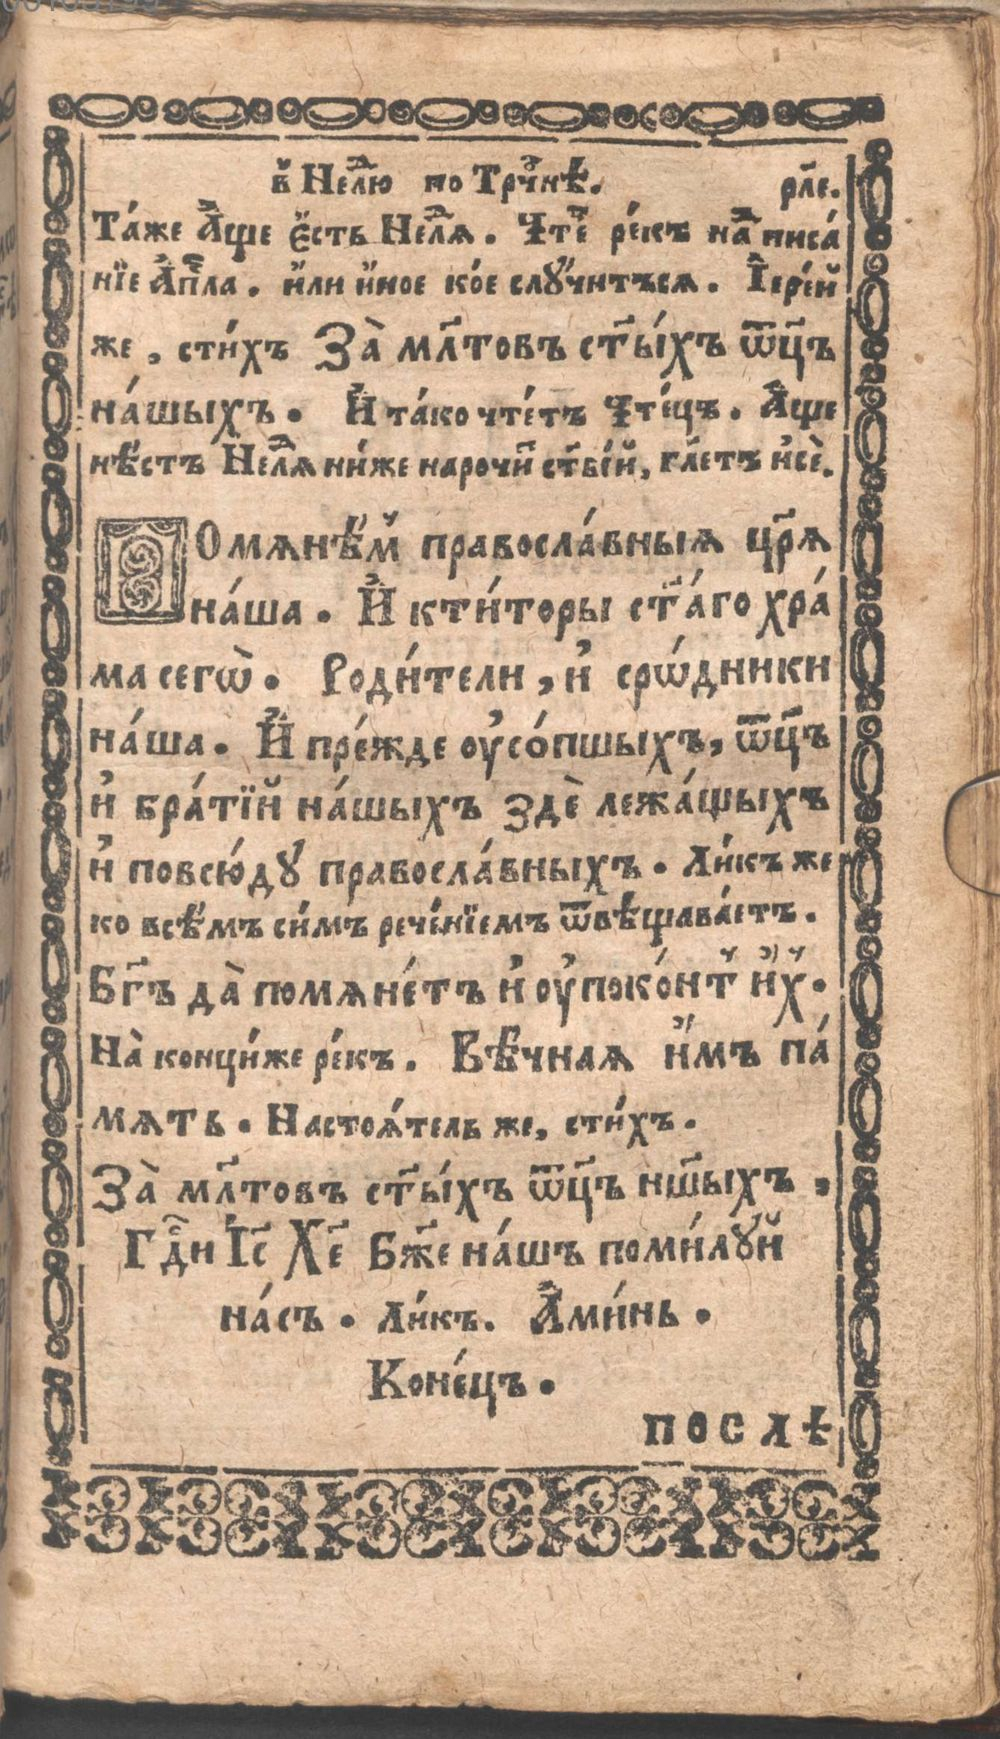 в̾ Неⷣлю по Трⷪ҇чнѣ. рл҃е.
Та́же А҆́ще є҆́сть Неⷣлѧ. Чте́ⷰ ре́къ наⷣписа́
нїе А҆пⷭ҇ла. и҆́ли и҆́ное ко́е слꙋ́читъсѧ. І҆ере́й
же, сти́хъ За̀ мл҃товъ ст҃ы́хъ ѿц҃ъ
на́шыхъ. И҆ та́ко чте́тъ Чте́цъ. А҆́ще
нѣ́стъ Неⷣлѧ ни́же нарочи҃ ст҃ві́й, гл҃етъ и҆сѐ.
Омѧнѣ́м̾ правосла́вныѧ цр҃ѧ
на́ша. И҆ кти́торы ст҃а́го хра́
ма сегѡ̀. Роди́тели, и҆ срѡ́дники
на́ша. И҆ пре́жде оу҆со́пшыхъ, ѿц҃ъ
и҆ бра́тїй на́шыхъ здѐ лежа́щыхъ
и҆ повсю́дꙋ правосла́вныхъ. Ли́къ же
ко всѣ́мъ си́мъ рече́нїемъ ѿвѣщава́етъ.
Бг҃ъ да̀ помѧне́тъ и҆ оу҆поко́ит̾ и҆́х̾.
На̀ конци́же ре́къ. Вѣ́чнаѧ и҆́мъ па́
мѧть. Настоѧ́тель же, сти́хъ.
За̀ мл҃товъ ст҃ы́хъ ѿц҃ъ нш҃ыхъ,
Гдⷭ҇и І҆с҃ Хе҃ Бж҃е на́шъ поми́лꙋй
на́съ. Ли́къ. А҆ми́нь.
Коне́цъ.
послѣ